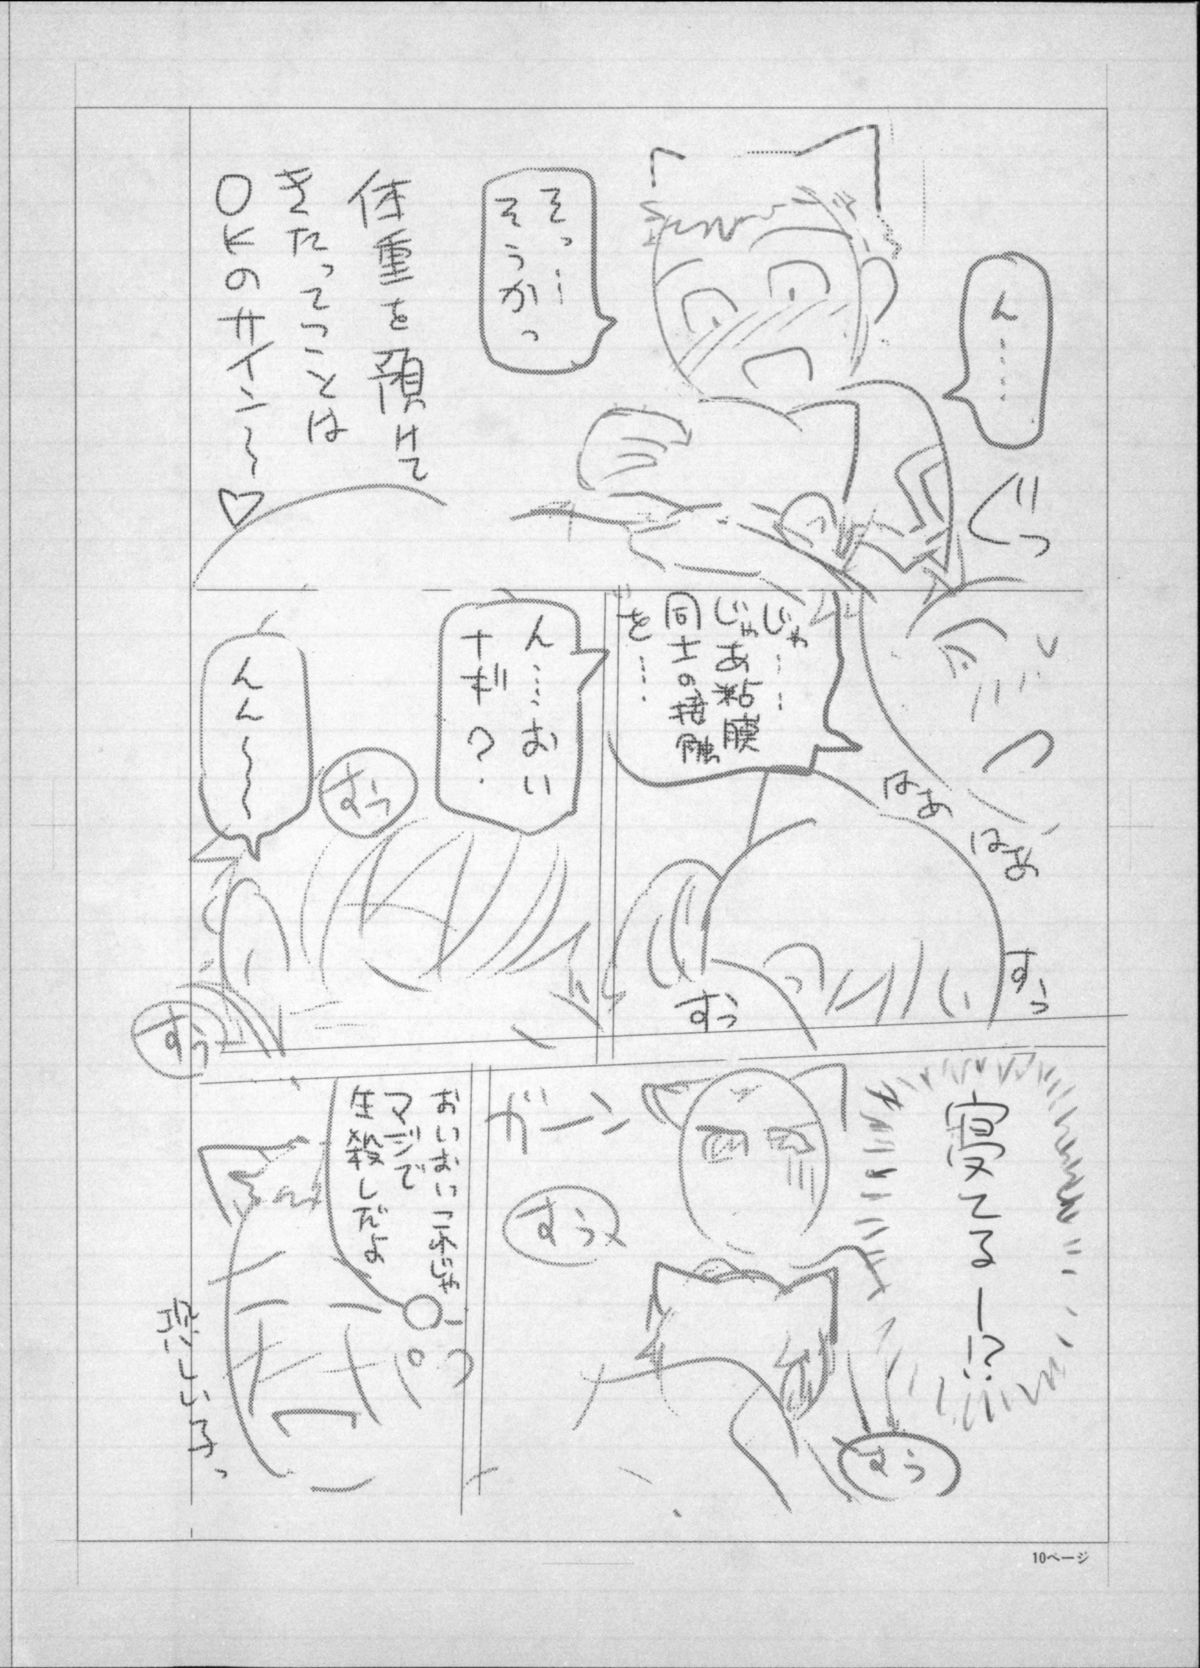 ん……
ぐっ
そっ……
そうかっ
体重を預けて
きたってことは
OKのサイン〜♡
じゃ……
じゃあ粘膜
同士の接触
を……
はぁ
はぁ
すぅ
すぅ
ん……おい
ナギ？
すぅ
んん〜〜〜
すぅ
寝てるー!?
ガーン
すぅ
すぅ
おいおいこれじゃ
マジで
生殺しだよ
恐しい子っ
10ページ